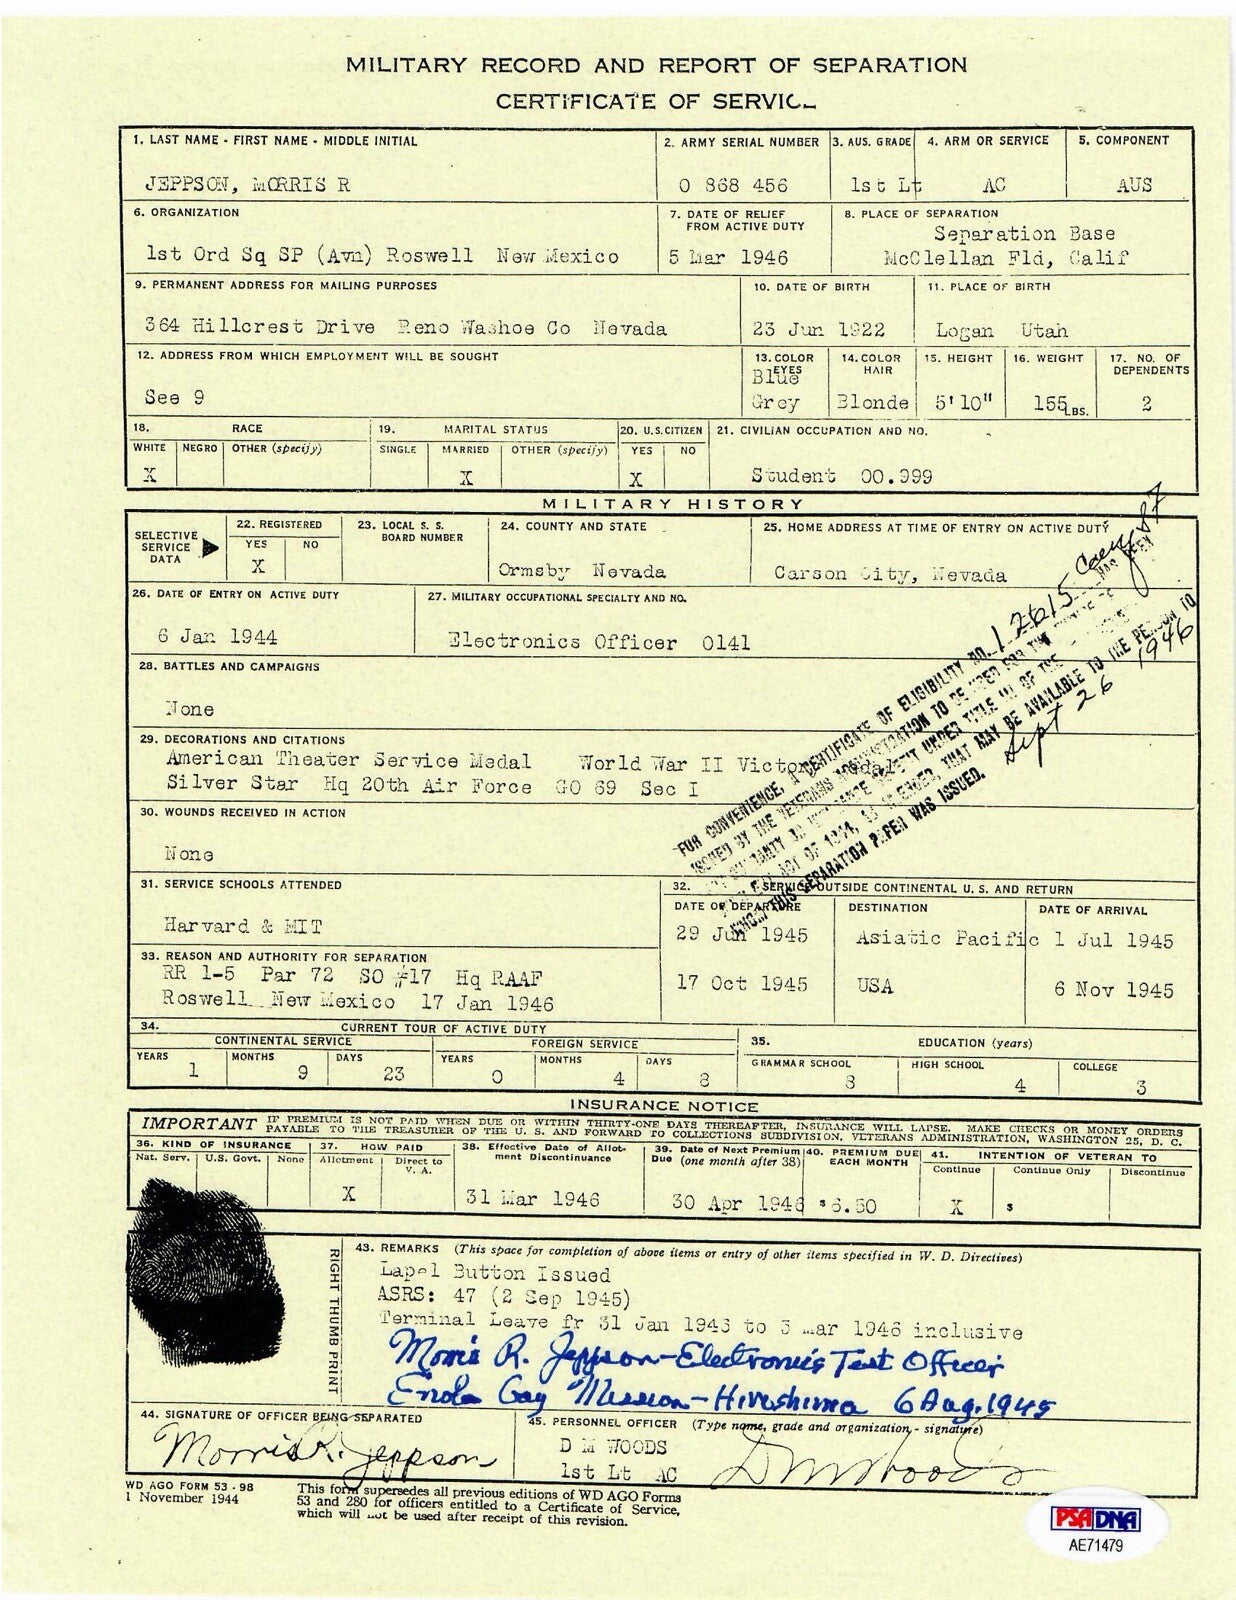 MILITARY RECORD AND REPORT OF SEPARATION
CERTIFICATE OF SERVIC
1. LAST NAME - FIRST NAME - MIDDLE INITIAL
JEPPSON, MORRIS R
2. ARMY SERIAL NUMBER
O 868 456
3. AUS. GRADE
1st Lt
4. ARM OR SERVICE
AC
5. COMPONENT
AUS
6. ORGANIZATION
1st Ord Sq SP (Avn) Roswell New Mexico
7. DATE OF RELIEF
FROM ACTIVE DUTY
5 Mar 1946
8. PLACE OF SEPARATION
Separation Base
McClellan Fld, Calif
9. PERMANENT ADDRESS FOR MAILING PURPOSES
364 Hillcrest Drive Reno Washoe Co Nevada
10. DATE OF BIRTH
23 Jun 1922
11. PLACE OF BIRTH
Logan Utah
12. ADDRESS FROM WHICH EMPLOYMENT WILL BE SOUGHT
See 9
13. COLOR
EYES
Blue
Grey
14. COLOR
HAIR
Blonde
15. HEIGHT
5'10"
16. WEIGHT
155 LBS.
17. NO. OF
DEPENDENTS
2
18. RACE
WHITE NEGRO OTHER (specify)
X
19. MARITAL STATUS
SINGLE MARRIED OTHER (specify)
X
20. U.S. CITIZEN
YES NO
X
21. CIVILIAN OCCUPATION AND NO.
Student 00.999
MILITARY HISTORY
SELECTIVE
SERVICE
DATA
22. REGISTERED
YES NO
X
23. LOCAL S. S.
BOARD NUMBER
24. COUNTY AND STATE
Ormsby Nevada
25. HOME ADDRESS AT TIME OF ENTRY ON ACTIVE DUTY
Carson City, Nevada
26. DATE OF ENTRY ON ACTIVE DUTY
6 Jan 1944
27. MILITARY OCCUPATIONAL SPECIALTY AND NO.
Electronics Officer 0141
28. BATTLES AND CAMPAIGNS
None
29. DECORATIONS AND CITATIONS
American Theater Service Medal World War II Victory Medal
Silver Star Hq 20th Air Force GO 69 Sec I
FOR CONVENIENCE, A CERTIFICATE OF ELIGIBILITY NO. 12615 HAS BEEN
ISSUED BY THE VETERANS ADMINISTRATION TO BE USED FOR THE
UNDER TITLE III OF THE
ACT OF 1944, AS AMENDED, THAT MAY BE AVAILABLE TO THE PERSON TO
WHOM THIS SEPARATION PAPER WAS ISSUED.
Sept 26 1946
30. WOUNDS RECEIVED IN ACTION
None
31. SERVICE SCHOOLS ATTENDED
Harvard & MIT
32. SERVICE OUTSIDE CONTINENTAL U. S. AND RETURN
DATE OF DEPARTURE DESTINATION DATE OF ARRIVAL
29 Jun 1945 Asiatic Pacific 1 Jul 1945
17 Oct 1945 USA 6 Nov 1945
33. REASON AND AUTHORITY FOR SEPARATION
RR 1-5 Par 72 SO #17 Hq RAAF
Roswell New Mexico 17 Jan 1946
34. CURRENT TOUR OF ACTIVE DUTY
CONTINENTAL SERVICE FOREIGN SERVICE
YEARS MONTHS DAYS YEARS MONTHS DAYS
1 9 23 0 4 8
35. EDUCATION (years)
GRAMMAR SCHOOL HIGH SCHOOL COLLEGE
8 4 3
INSURANCE NOTICE
IMPORTANT IF PREMIUM IS NOT PAID WHEN DUE OR WITHIN THIRTY-ONE DAYS THEREAFTER, INSURANCE WILL LAPSE. MAKE CHECKS OR MONEY ORDERS
PAYABLE TO THE TREASURER OF THE U. S. AND FORWARD TO COLLECTIONS SUBDIVISION, VETERANS ADMINISTRATION, WASHINGTON 25, D. C.
36. KIND OF INSURANCE
Nat. Serv. U.S. Govt. None
37. HOW PAID
Allotment Direct to
V. A.
X
38. Effective Date of Allot-
ment Discontinuance
31 Mar 1946
39. Date of Next Premium
Due (one month after 38)
30 Apr 1946
40. PREMIUM DUE
EACH MONTH
$6.50
41. INTENTION OF VETERAN TO
Continue Continue Only Discontinue
X $
RIGHT THUMB PRINT
43. REMARKS (This space for completion of above items or entry of other items specified in W. D. Directives)
Lapel Button Issued
ASRS: 47 (2 Sep 1945)
Terminal Leave fr 31 Jan 1946 to 5 Mar 1946 inclusive
Morris R. Jeppson - Electronics Test Officer
Enola Gay Mission - Hiroshima 6 Aug. 1945
44. SIGNATURE OF OFFICER BEING SEPARATED
Morris R. Jeppson
45. PERSONNEL OFFICER (Type name, grade and organization - signature)
D M WOODS
1st Lt AC
D M Woods
WD AGO FORM 53 - 98
1 November 1944
This form supersedes all previous editions of WD AGO Forms
53 and 280 for officers entitled to a Certificate of Service,
which will not be used after receipt of this revision.
PSA DNA
AE71479